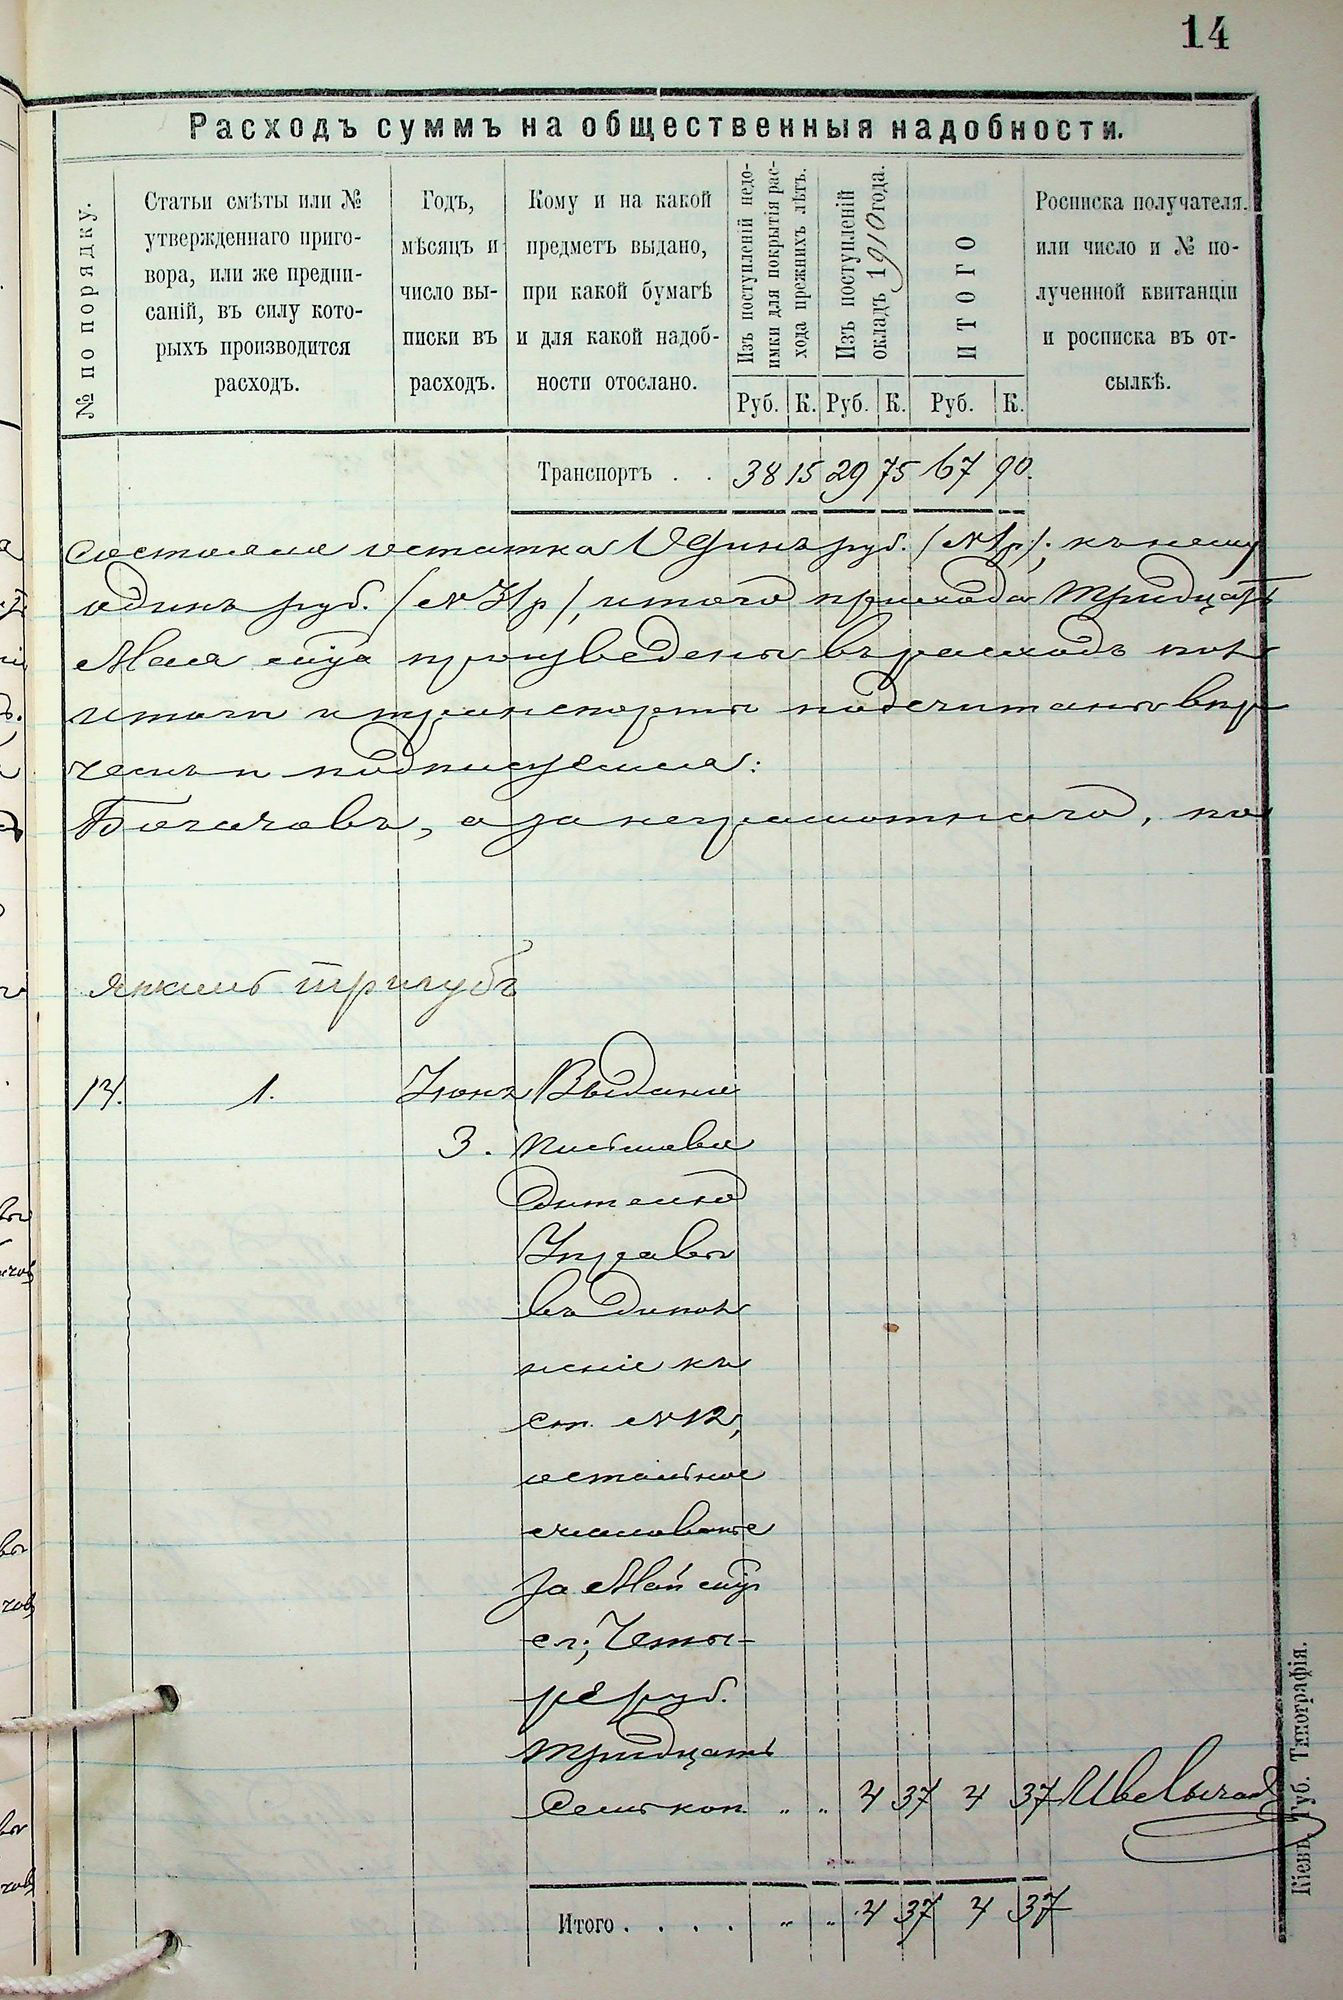 14
Расходъ суммъ на общественныя надобности.
№ по порядку.
Статьи смѣты или №
утвержденнаго приго-
вора, или же предпи-
саній, въ силу кото-
рыхъ производится
расходъ.
Годъ,
мѣсяцъ и
число вы-
писки въ
расходъ.
Кому и на какой
предметъ выдано,
при какой бумагѣ
и для какой надоб-
ности отослано.
Изъ поступленій недо-
имки для покрытія рас-
хода прежнихъ лѣтъ.
Изъ поступленій
окладъ 1910 года.
ИТОГО
Росписка получателя.
или число и № по-
лученной квитанціи
и росписка въ от-
сылкѣ.
Руб. К. Руб. К. Руб. К.
Транспортъ . . 38 15 29 75 67 90.
состояло остатка Одинъ руб. (№ 1/р); къ нему
одинъ руб. (№ 3/р), итого прихода Тридцать
Мая произведены въ расходъ
итоги и транспорты подсчитаны
чемъ и подписуемся:
Богачовъ, а за неграмотного, по
Якимъ Тригубъ
14. 1. Іюня Выдано
3. письмово
дителю
Управы
въ допол
неніе къ
ст. № 12,
остальное
жалованье
за Май
с.г.; Четы-
ре руб.
тридцать
семь коп. „ „ 4 37 4 37
Итого . . . . „ „ 4 37 4 37
Кіевъ. Губ. Типографія.